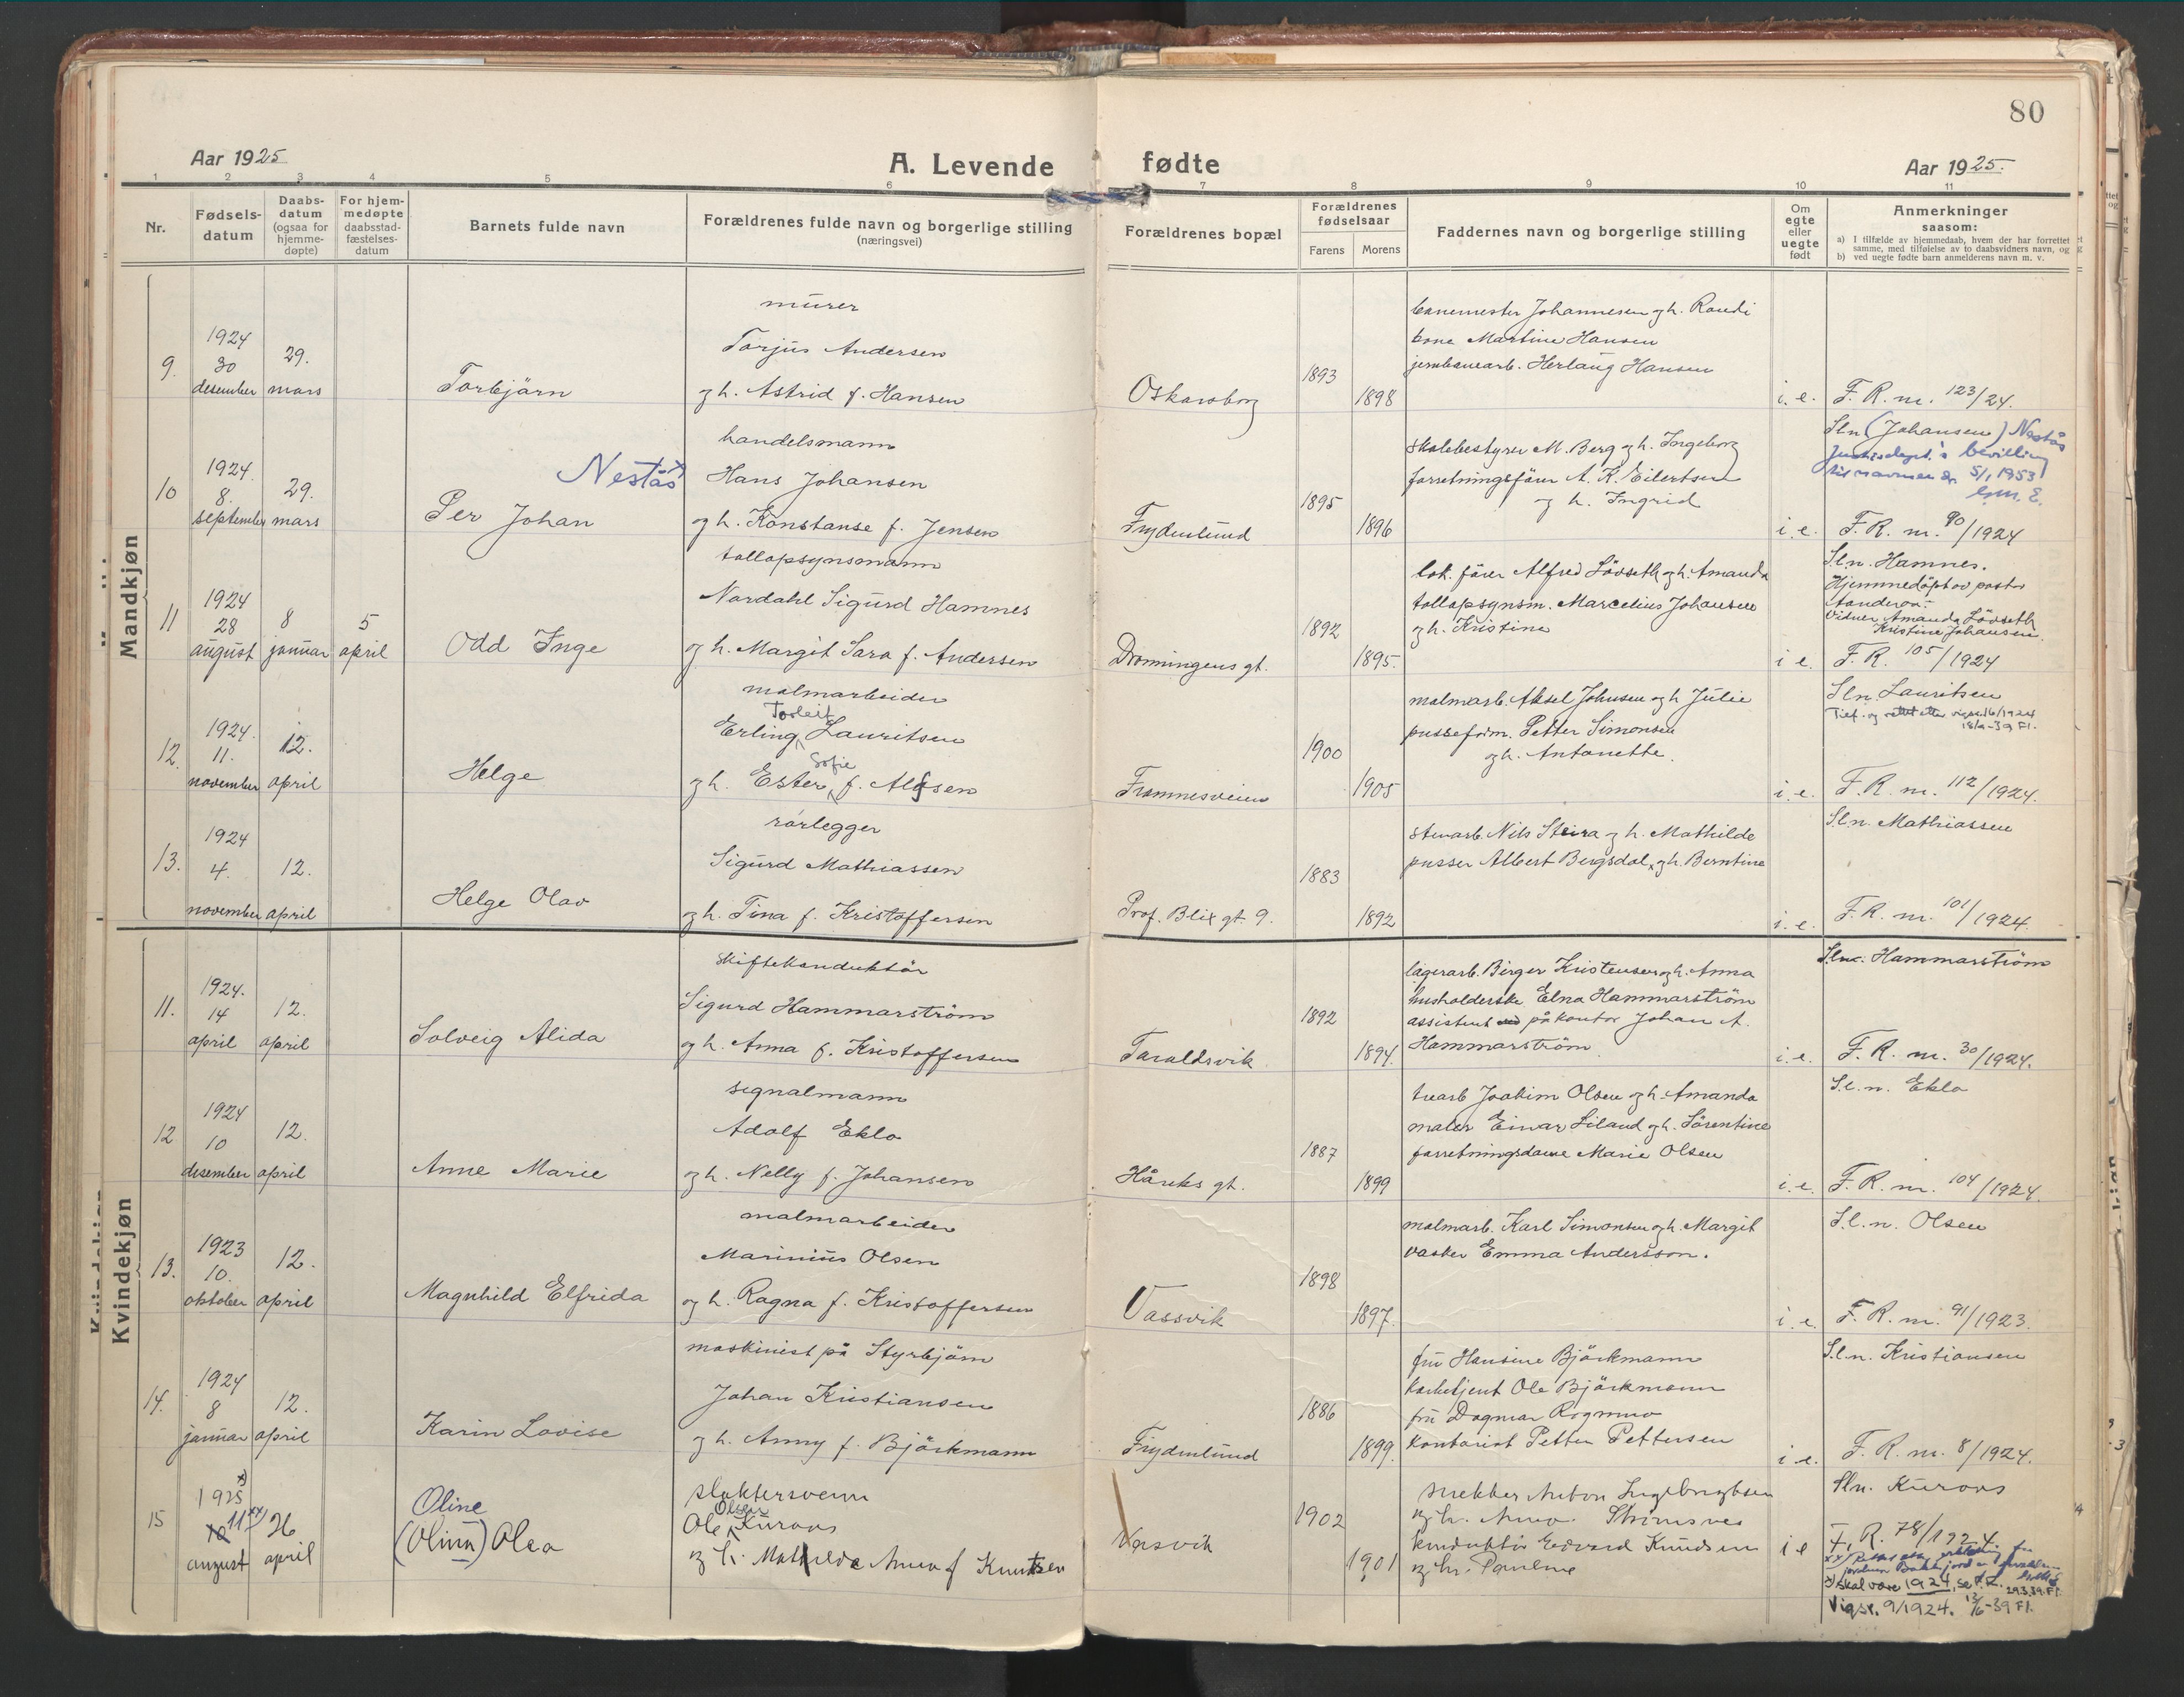 80
Aar 1925
A. Levende fødte
Aar 1925.
1 2 3 4 5 6 7 8 9 10 11
Nr.
Fødsels-
datum
Daabs-
datum
(ogsaa for
hjemme-
døpte)
For hjem-
medøpte
daabsstad-
fæstelses-
datum
Barnets fulde navn
Forældrenes fulde navn og borgerlige stilling
(næringsvei)
Forældrenes bopæl
Forældrenes
fødselsaar
Farens
Morens
Faddernes navn og borgerlige stilling
Om
egte
eller
uegte
født
Anmerkninger
saasom:
a) I tilfælde av hjemmedaab, hvem der har forrettet
samme, med tilføielse av to daabsvidners navn, og
b) ved uegte fødte barn anmelderens navn m. v.
Mandkjøn
9.
1924
30
desember
29.
mars
Torbjørn
murer
Torjus Andersen
og h. Astrid f. Hansen
Oskarsborg
1893
1898
banemester Johannesen og h. Randi
kone Martine Hansen
jernbanearb. Herlaug Hansen
i. e.
F. R. nr. 123/24.
10
1924.
8.
september
29.
mars
Nestås
Per Johan
handelsmann
Hans Johansen
og h. Konstanse f. Jensen
Frydenlund
1895
1896
skolebestyrer M. Berg og h. Ingeborg
forretningsfører A. K. Eilertsen
og h. Ingrid
i. e.
Sln (Johansen) Nestås
Justisdept.s bevilling
til navnet dr. 5/1 1953
F. R. nr. 90/1924
11
1924
28
august
8
januar
5
april
Odd Inge
tollopsynsmann
Nordahl Sigurd Hamnes
og h. Margit Sara f. Andersen
Dronningens gt.
1892
1895.
lok. fører Alfred Løvseth og h. Amanda
tollopsynsm. Marcelius Johansen
og h. Kristine
i e.
Sln. Hamnes.
Hjemmedøpt av pastor
Vidner Amanda Løvseth
Kristine Johansen.
F. R. 105/1924
12.
1924.
11.
november
12.
april
Helge
malmarbeider
Torleif
Erling Lauritsen
Sofie
og h. Ester f. Alfsen
Framnesveien
1900
1905
malmarb. Aksel Johnsen og h. Julie
pusseform. Petter Simonsen
og h. Antonette.
i. e.
Sln Lauritsen
F. R. nr. 112/1924.
13.
1924
4.
november
12.
april
Helge Olav
rørlegger
Sigurd Mathiassen
og h. Tina f. Kristoffersen
Prof. Blix gt. 9.
1883
1892
stenarb. Nils Steira og h. Mathilde
pusser Albert Bergsdal, og h. Berntine
i. e.
Sln. Mathiassen
F. R. nr. 101/1924.
Kvindekjøn
11.
1924.
14
april
12.
april
Solveig Alida
skiftekonduktør
Sigurd Hammarström
og h. Anna f. Kristoffersen
Taraldsvik
1892
1894.
lagerarb. Birger Kristensen og h. Anna
husholderske Elna Hammarström
assistent på kontor Johan A.
Hammarström
i. e.
Slnc. Hammarström
F. R. nr. 30/1924.
12
1924
10
desember
12.
april
Anne Marie
signalmann
Adolf Eklo
og h. Nelly f. Johansen
Håreks gt.
1887
1899
Joakim Olsen og h. Amanda
maler Einar Liland og h. Sørentine
forretningsdame Marie Olsen
i. e.
S.l.n. Eklo
F. R. nr. 104/1924.
13.
1923
10.
oktober
12.
april
Magnhild Elfrida
malmarbeider
Marinius Olsen
og h. Ragna f. Kristoffersen
Vassvik
1898
1897.
malmarb. Karl Simonsen og h. Margit
vasker Emma Andersson.
i. e.
S.l.n. Olsen
F. R. nr. 91/1923.
14.
1924
8
januar
12.
april
Karin Lovise
maskinist på Styrbjørn
Johan Kristiansen
og h. Anny f. Björkmann
Frydenlund
1886
1899.
fru Hansine Björkmann
Ole Björkmann
fru Dagmar Rognmo
kontorist Petter Pettersen
i e.
S.l.n. Kristiansen
F. R. nr. 8/1924.
15
x)
1925
10 11 xx)
august
26
april
Oline
(Olina) Olea
slaktersvenn
Olsen
Ole Kurås
og h. Mathilde Anna f Knutsen
Vassvik
1902
1901
snekker Anton Ingebrigtsen
og h. Anna Strimsnes
konduktør Edvard Knudsen
og h. Pauline
i e
Sln. Kurås
F. R. 78/1924.
x) skal være 1924, se F. R. 29.3.39. Fl.
Vigsr. 9/1924. 13/6-39 Fl.